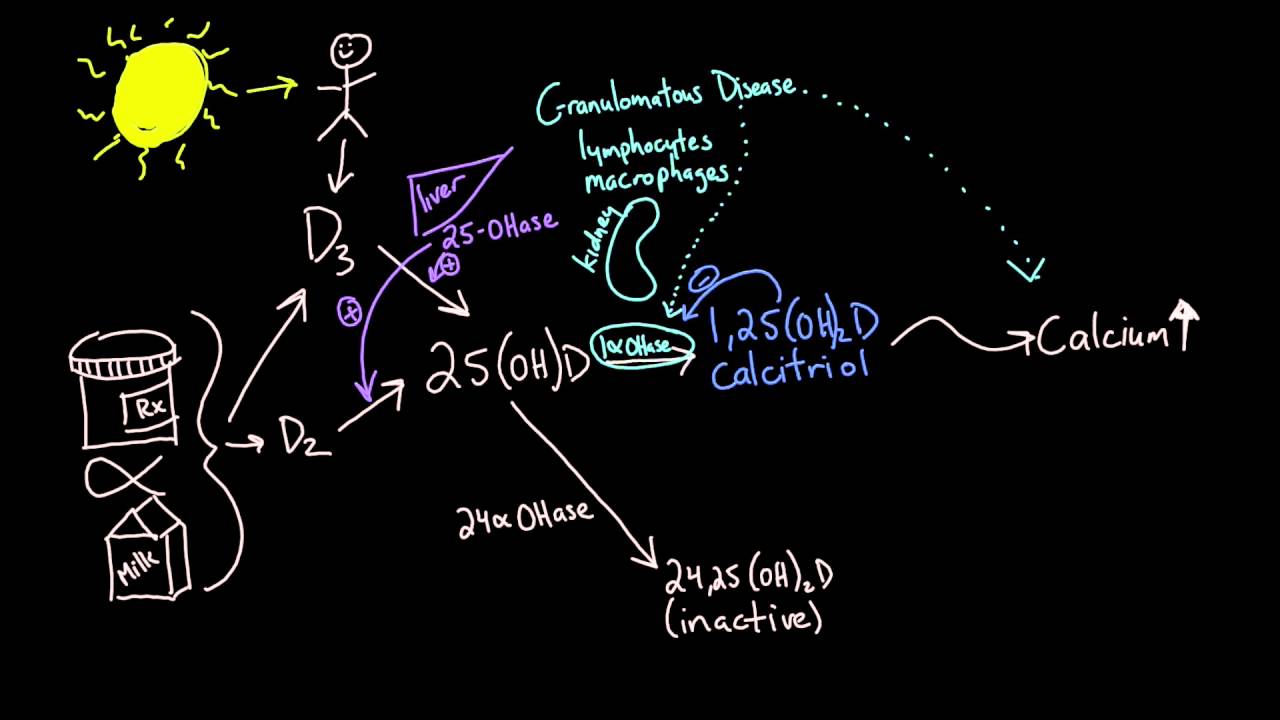 Granulomatous Disease
lymphocytes
macrophages
liver
25-OHase
kidney
+
+
-
D₃
25(OH)D
1αOHase
1,25(OH)₂D
Calcitriol
Calcium
Rx
D₂
Milk
24αOHase
24,25(OH)₂D
(inactive)